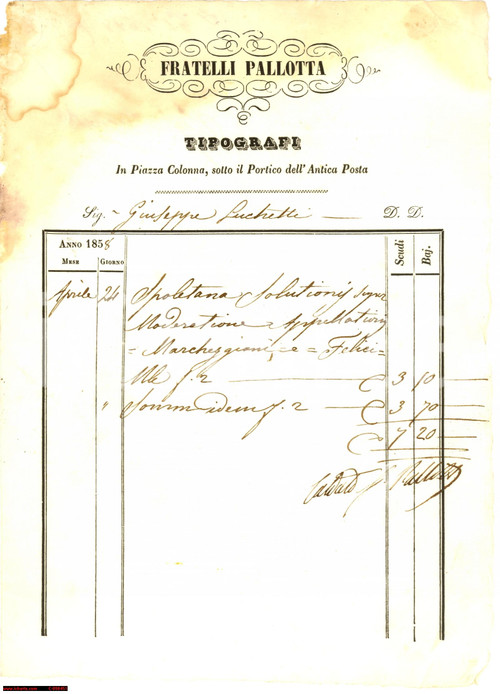 FRATELLI PALLOTTA
TIPOGRAFI
In Piazza Colonna, sotto il Portico dell' Antica Posta
Sig. Giuseppe Luchetti D. D.
ANNO 1858
MESE GIORNO Scudi Baj.
Aprile 24 Spoletana Solutionis super
Moderatione Appellationis
= Marcheggiani = e = Felici =
f. 2 3 50
" Somm idem f. 2 3 70
7 20
Saldato Pallotta